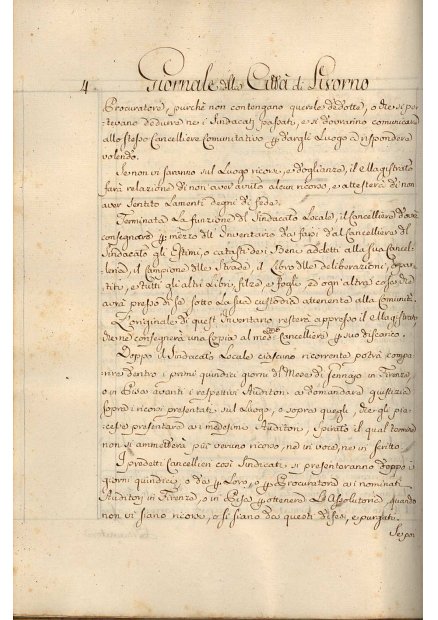 4. Giornale della Città di Livorno
Procuratore, purchè non contengano querele dedotte, o che si po
tevano dedurre ne i Sindacati passati, e si dovranno comunicare
allo stesso Cancelliere Comunitativo p dargli Luogo à rispondere
volendo.
Se non vi saranno sul Luogo ricorsi, e doglianze, il Magistrato
farà relazione di non aver avuto alcun ricorso, e attesterà di non
aver sentito Lamenti degni di fede.
Terminata La funzione del Sindacato Locale, il Cancelliere dovrà
consegnare p mezzo dell' Inventario da farsi dal Cancelliere del
Sindacato gli Estimi, o catasti de i Beni addetti alla sua Cancel-
leria, il Campione delle Strade, il Libro delle deliberazioni, e parti-
ti, e tutti gli altri Libri, filze, e fogli, ed ogni altra cosa che
avrà presso di se sotto La sua custodia attenente alla Comunità.
L'originale di quest' Inventario resterà appresso il Magistrato,
che ne consegnerà una Copia al med.mo Cancelliere p suo discarico.
Doppo il Sindacato Locale ciascuno ricorrente potrà compa-
rire dentro i primi quindici giorni di Mese di Gennajo in Firenze,
o in Pisa avanti i respettivi Auditori a domandare giustizia
sopra i ricorsi presentati sul Luogo, o sopra quegli, che gli pia-
cesse presentare ai medesimi Auditori, spirato il qual termine
non si ammetterà più veruno ricorso, nè in voce, nè in scritto.
I predetti Cancellieri così Sindacati si presenteranno doppo i
giorni quindici, o da p Loro, o p Procuratore ai nominati
Auditori in Firenze, o in Pisa p ottenere L'Assolutoria, quando
non vi siano ricorsi, o si siano da questi difesi, e purgati.